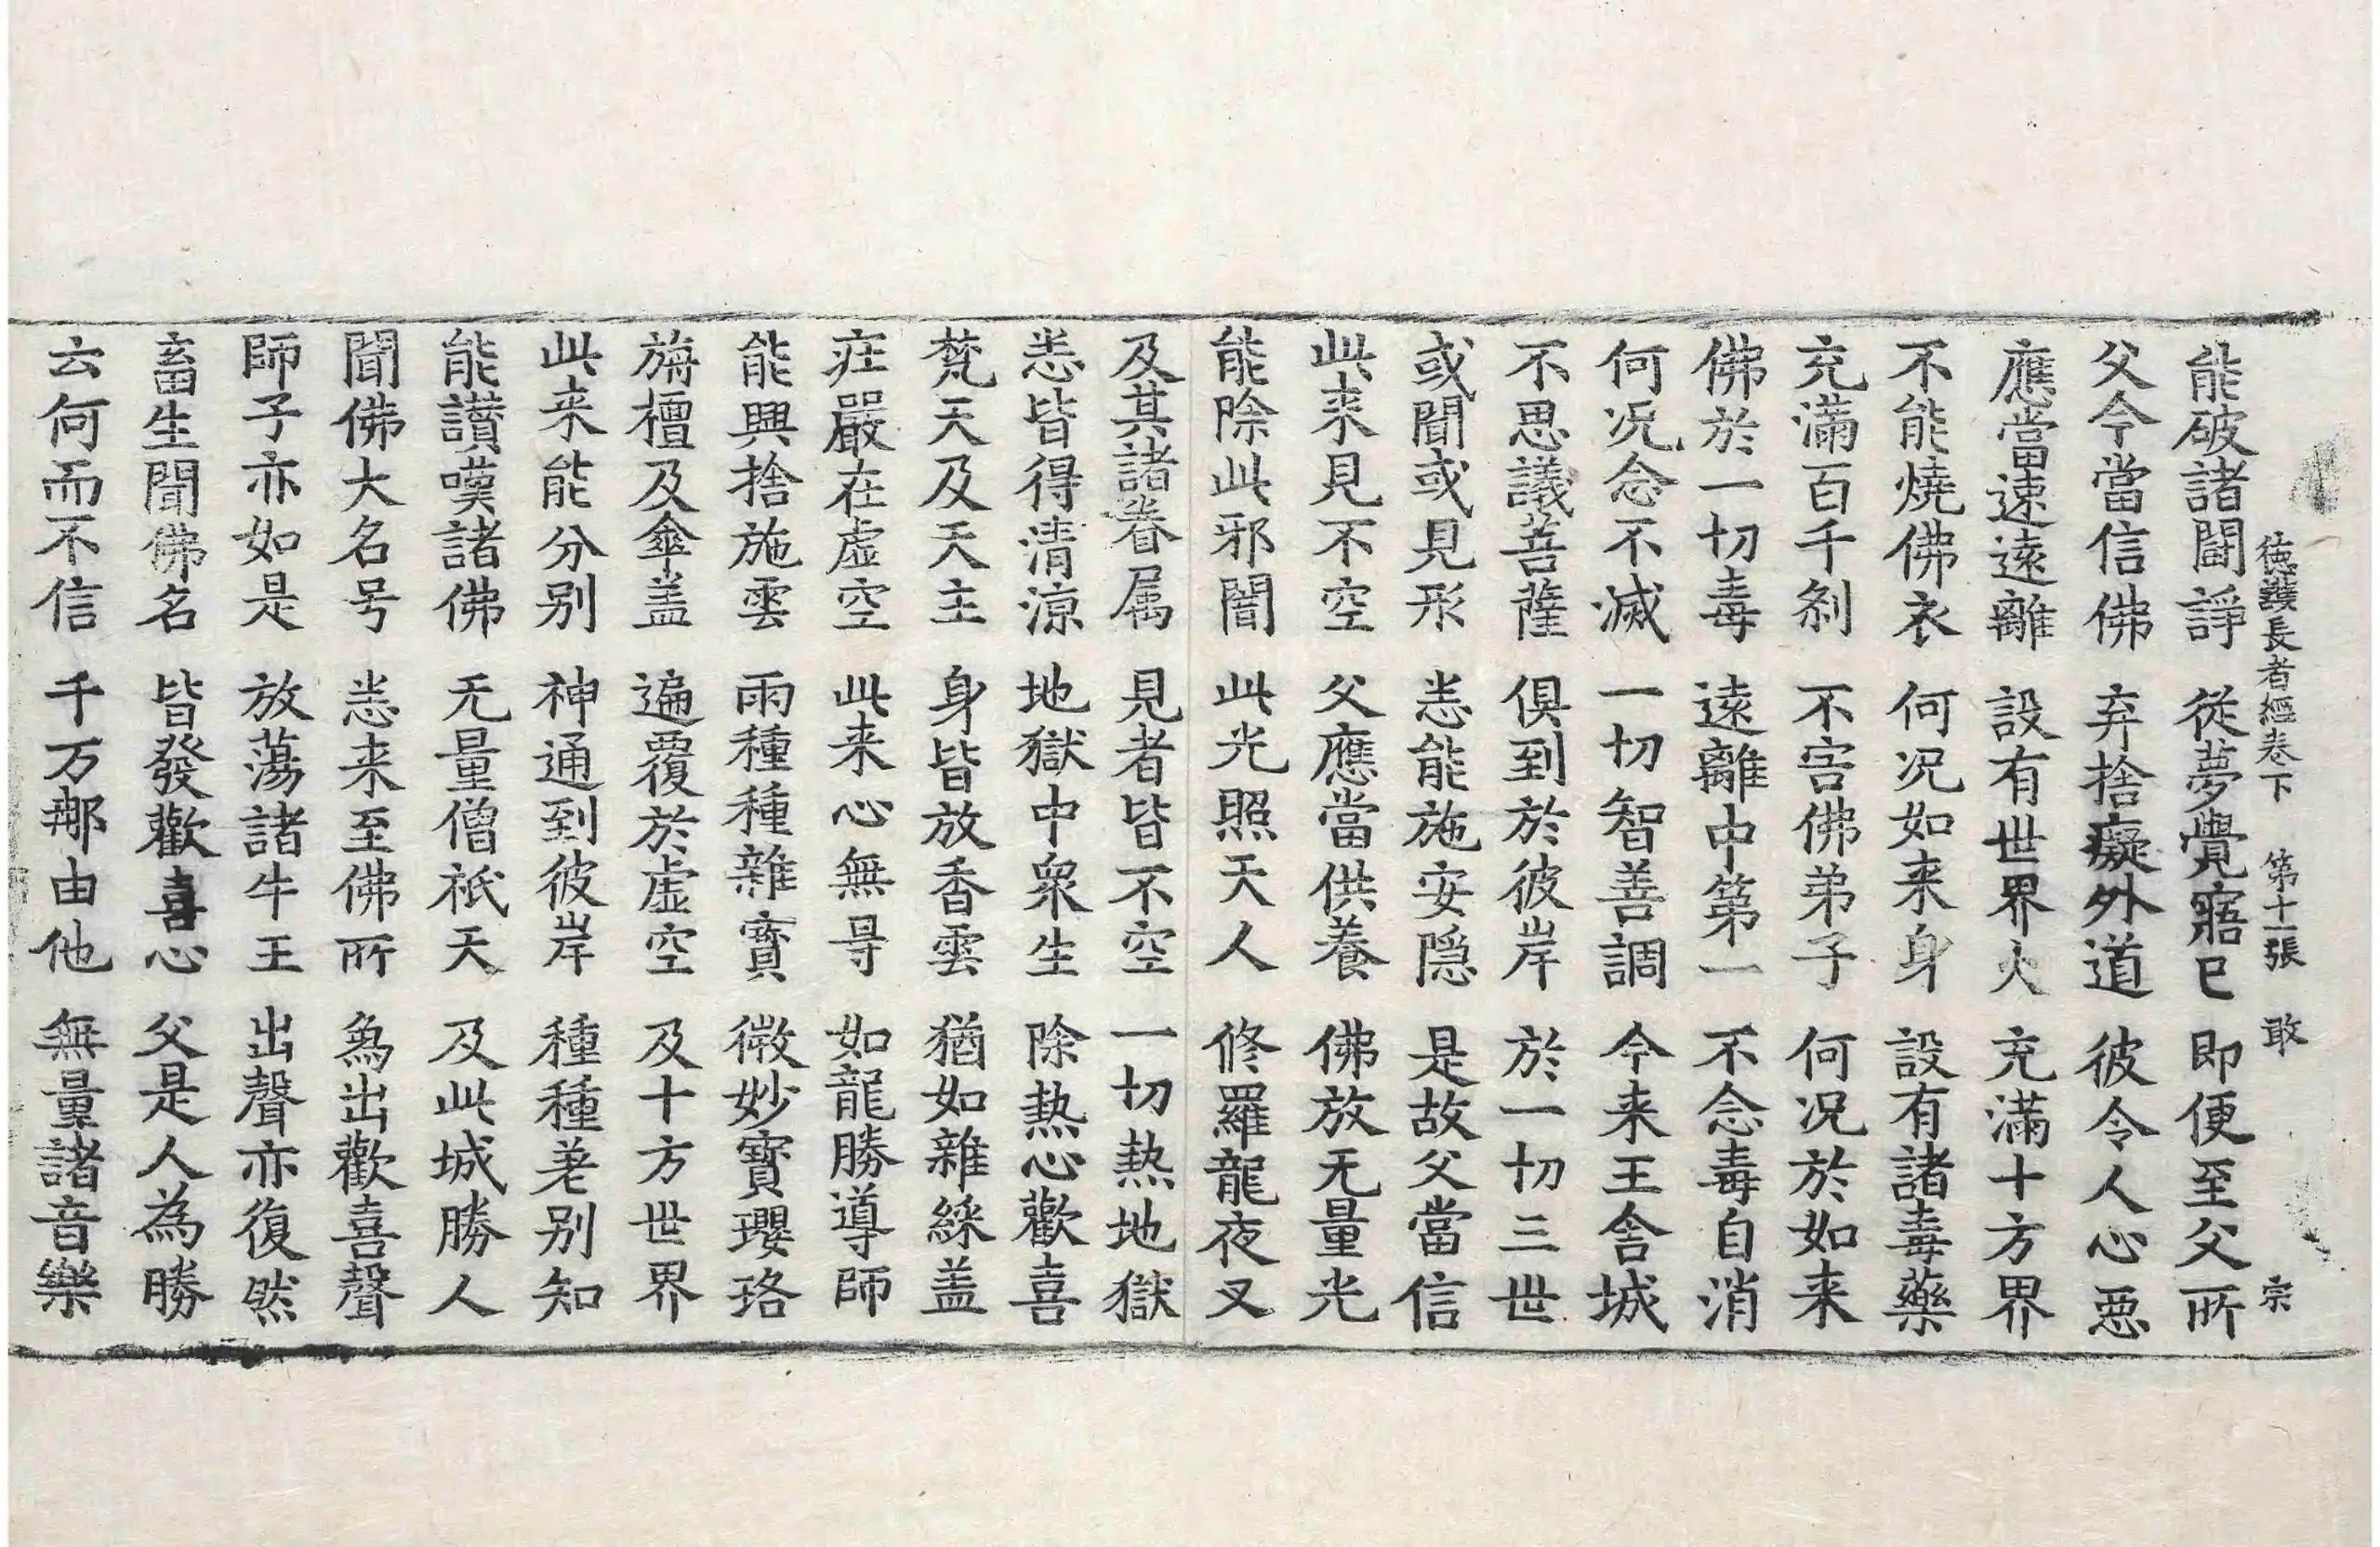 徳護長者經卷下　第十一張　敢　宗
能破諸闘諍　從夢覺寤已　即便至父所
父今當信佛　弃捨癡外道　彼令人心惡
應當速遠離　設有世界火　充滿十方界
不能燒佛衣　何况如来身　設有諸毒藥
充滿百千刹　不害佛弟子　何况於如来
佛於一切毒　遠離中第一　不念毒自消
何况念不滅　一切智善調　今来王舎城
不思議菩薩　俱到於彼岸　於一切三世
或聞或見形　悉能施安隠　是故父當信
此来見不空　父應當供養　佛放无量光
能除此邪闇　此光照天人　修羅龍夜叉
及其諸眷属　見者皆不空　一切熱地獄
悉皆得清涼　地獄中衆生　除熱心歡喜
梵天及天主　身皆放香雲　猶如雜綵盖
庄嚴在虚空　此来心無㝵　如龍勝導師
能興捨施雲　雨種種雜寶　微妙寶瓔珞
旃檀及傘盖　遍覆於虚空　及十方世界
此来能分别　神通到彼岸　種種差别知
能讃嘆諸佛　无量僧祇天　及此城勝人
聞佛大名号　悉来至佛所　為出歡喜聲
師子亦如是　放蕩諸牛王　出聲亦復然
畜生聞佛名　皆發歡喜心　父是人為勝
云何而不信　千万那由他　無量諸音樂